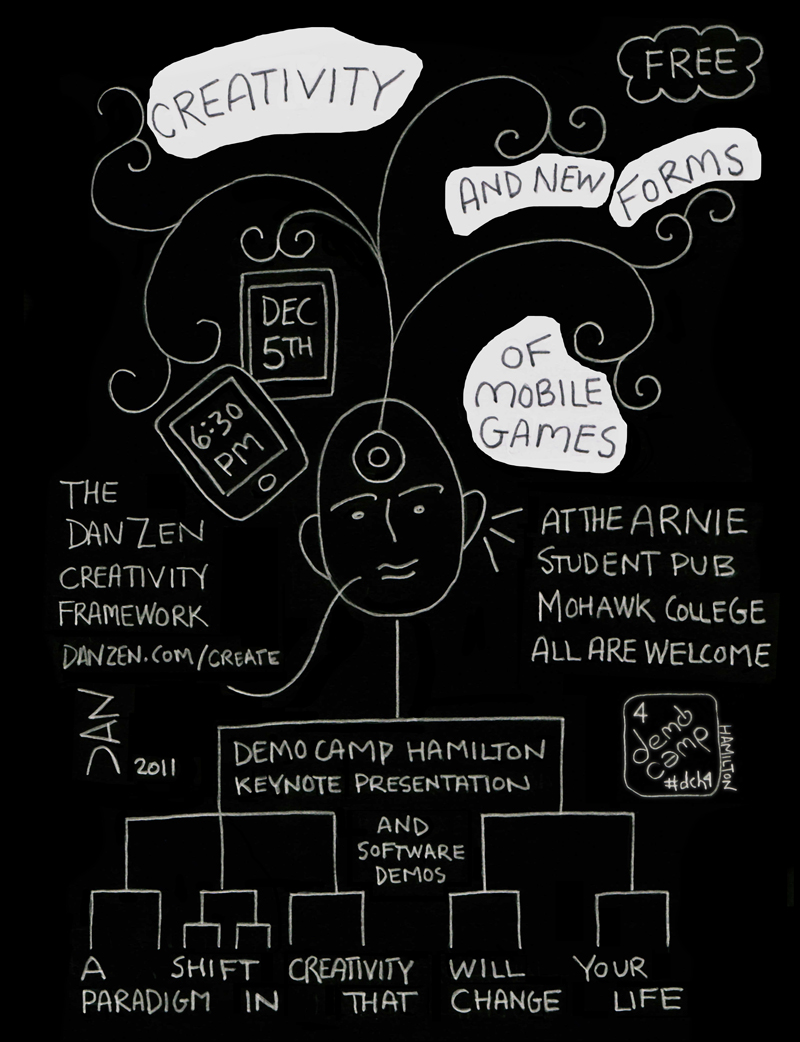 CREATIVITY
FREE
AND NEW FORMS
OF
MOBILE
GAMES
DEC
5TH
6:30
PM
THE
DANZEN
CREATIVITY
FRAMEWORK
DANZEN.COM/CREATE
AT THE ARNIE
STUDENT PUB
MOHAWK COLLEGE
ALL ARE WELCOME
DAN 2011
DEMO CAMP HAMILTON
KEYNOTE PRESENTATION
4
demo
camp
#dch4
HAMILTON
AND
SOFTWARE
DEMOS
A SHIFT CREATIVITY WILL YOUR
PARADIGM IN THAT CHANGE LIFE